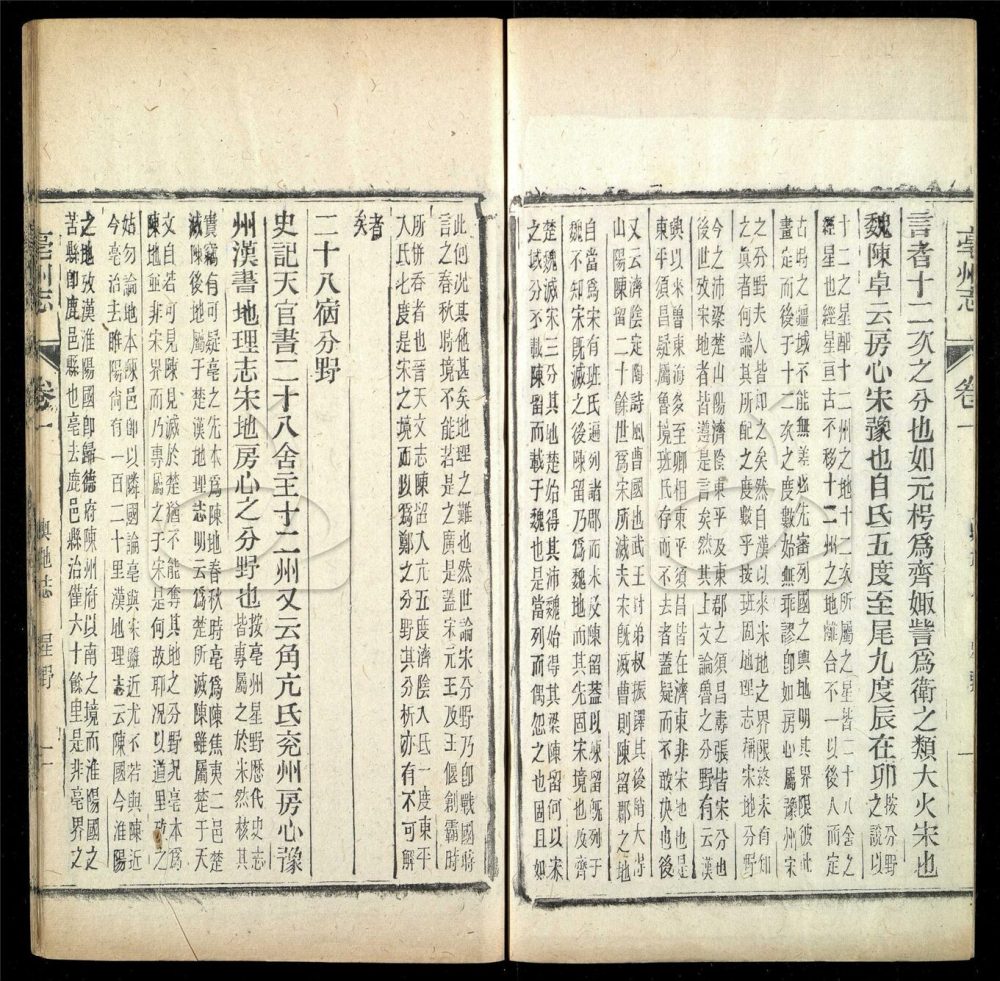 亳州志 卷一
言者十二次之分也如元枵爲齊娵訾爲衛之類大火宋也
魏陳卓云房心宋豫也自氐五度至尾九度辰在卯之說以
按分野
十二之星配十二州之地十二次所屬之星皆二十八舍之
經星也經星亘古不移十二州之地離合不一以後人而定
古時之疆域不能無差必先審列國之輿地明其界限彼此
畫定而後于十二次之度數始無乖謬卽如房心屬豫州宋
之分野夫人皆知之矣然自漢以來宋地之界限終未有知
真者何論其所配之度數乎按班固地理志稱宋地分野
今之沛梁楚山陽濟陰東平及東郡之須昌壽張皆宋分也
後世攷宋地者皆遵是言矣然其上文論魯之分野有云漢
興以來魯東海多至卿相東平須昌皆在濟東非宋地也是
東平須昌疑屬魯境班氏存而不去者蓋疑而不敢決也後
又云濟陰定陶詩風曹國也武王封弟叔振鐸其後稍大得
山陽陳留二十餘世爲宋所滅夫宋旣滅曹則陳留郡之地
自當爲宋有班氏遍列諸郡而未及陳留蓋以陳留旣列于
魏不知宋旣滅之後陳留乃爲魏地而其先固宋境也及齊
楚魏滅宋三分其地魏始得其梁陳留何以宋
之域分不載陳留而載于魏也是當列而偶忘之也固且如
此何況其他甚矣地理之難也然世論宋分野乃卽戰國時
言之春秋時境不能若是之廣是蓋宋元王及王偃創霸時
所併吞者也晉天文志陳留入亢五度濟陰入氐一度東平
入氐七度是宋之境而以爲鄭之分野其分析亦有不可解
者
矣
二十八宿分野
史記天官書二十八舍主十二州又云角亢氐兗州房心豫
州漢書地理志宋地房心之分野也
按亳州星野歷代史志
皆專屬之於宋然核其
實竊有可疑亳之先本爲陳地春秋時亳爲陳焦夷二邑楚
滅陳後地屬于楚漢地理志明云爲楚所滅陳雖屬楚于天
文自若可見陳見滅於楚猶不能奪其地之分野況亳本爲
陳地並非宋界而乃專屬之于宋是何故耶況以道里攷之
姑勿論地本陳邑卽以隣國論亳與宋雖近尤不若與陳近
今亳治去睢陽尙有一百二十里漢地理志云陳國今淮陽
之地攷漢淮陽國卽歸德府陳州府以南之境而淮陽國之
苦縣卽鹿邑縣也亳去鹿邑縣治僅六十餘里是非亳界之
亳州志 卷一 輿地志 星野